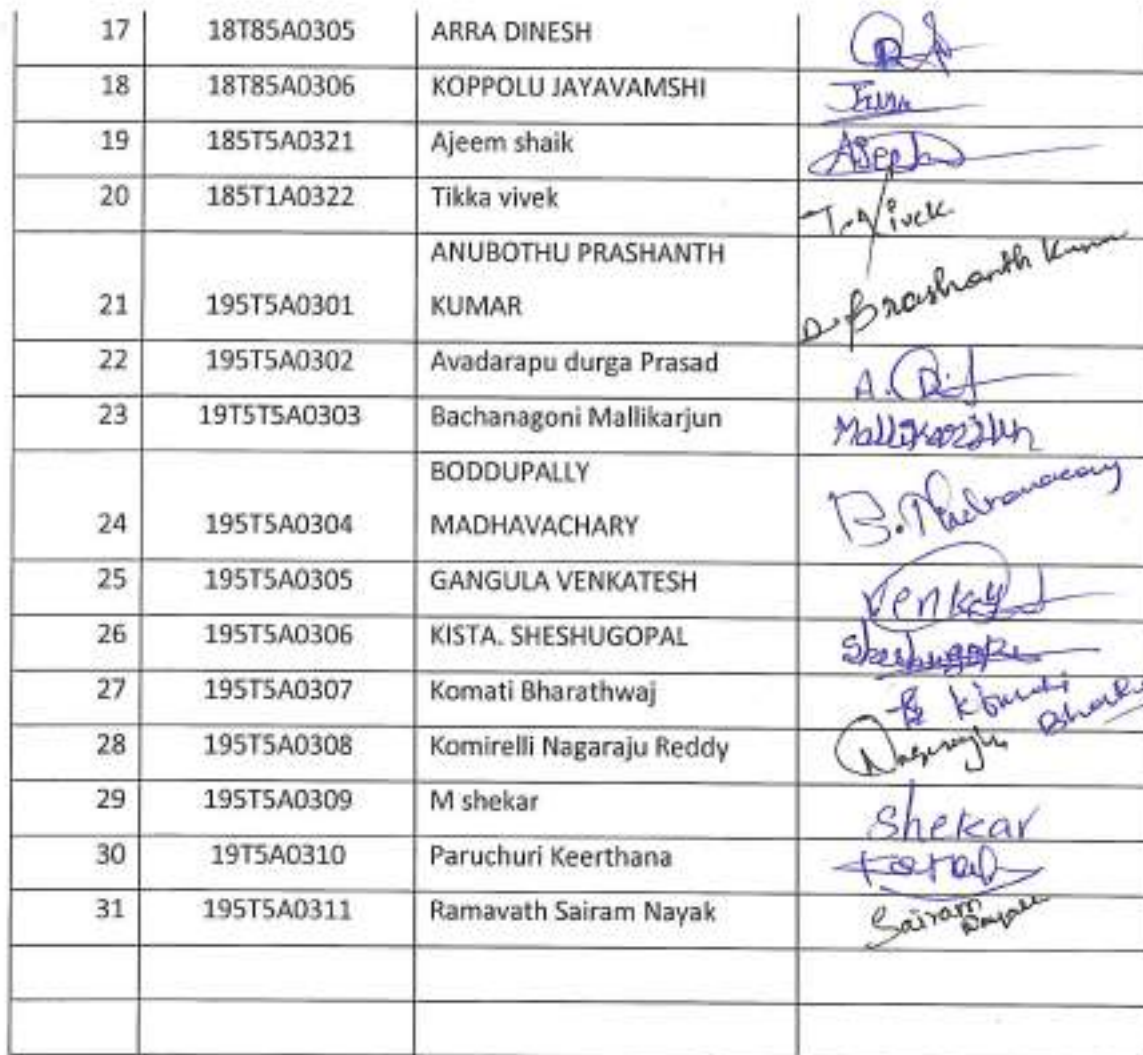 17 18T85A0305 ARRA DINESH
18 18T85A0306 KOPPOLU JAYAVAMSHI
19 185T5A0321 Ajeem shaik
20 185T1A0322 Tikka vivek T. Vivek
ANUBOTHU PRASHANTH
21 195T5A0301 KUMAR A. Prashanth Kumar
22 195T5A0302 Avadarapu durga Prasad
23 19T5T5A0303 Bachanagoni Mallikarjun Mallikarjun
BODDUPALLY
24 195T5A0304 MADHAVACHARY
25 195T5A0305 GANGULA VENKATESH
26 195T5A0306 KISTA. SHESHUGOPAL
27 195T5A0307 Komati Bharathwaj
28 195T5A0308 Komirelli Nagaraju Reddy
29 195T5A0309 M shekar Shekar
30 19T5A0310 Paruchuri Keerthana
31 195T5A0311 Ramavath Sairam Nayak Sairam Nayak